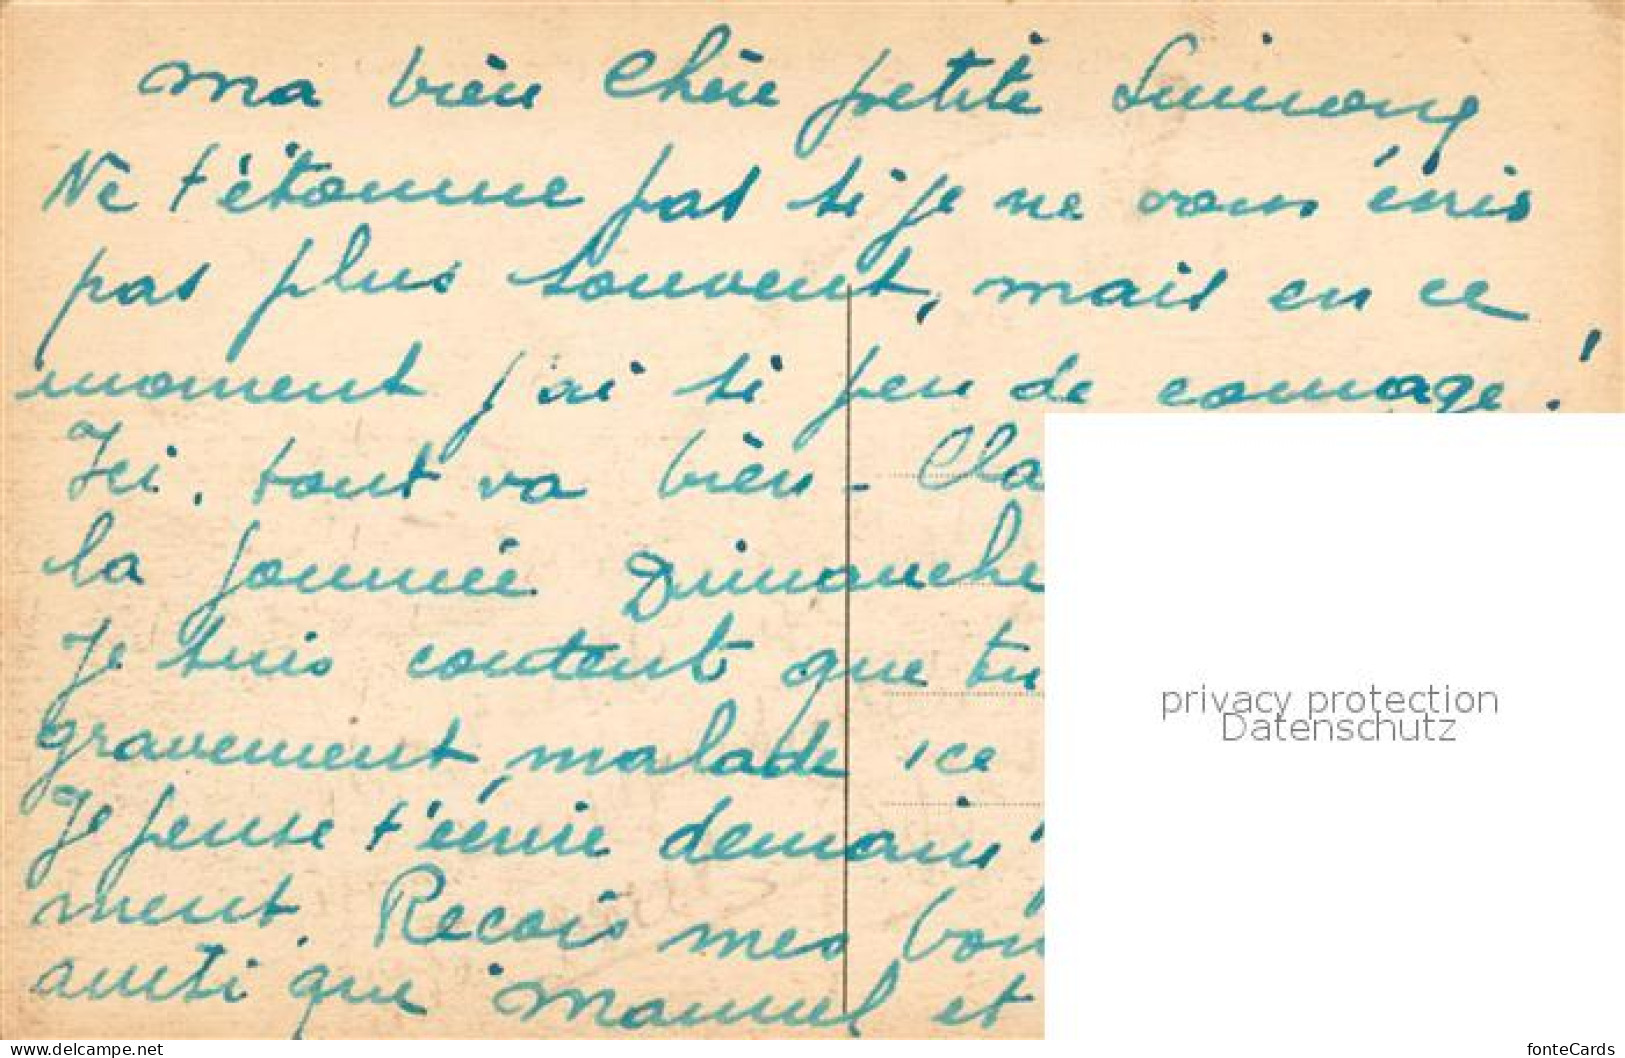 ma bien Chère petite Simone
Ne t'étonne pas si je ne vous écris
pas plus souvent, mais en ce
moment j'ai si peu de courage!
Ici, tout va bien - Cla
la journée Dimanche
Je suis content que tu
gravement malade
Je pense t'écrire demain
ment. Recois mes bon
ainsi que Manuel et
privacy protection
Datenschutz
www.delcampe.net
fonteCards